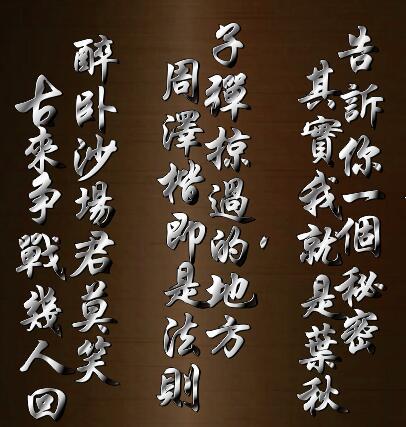 告訴你一個秘密
其實我就是葉秋
子禪掠過的地方
周澤楷即是法則
醉卧沙場君莫笑
古來争戰幾人回